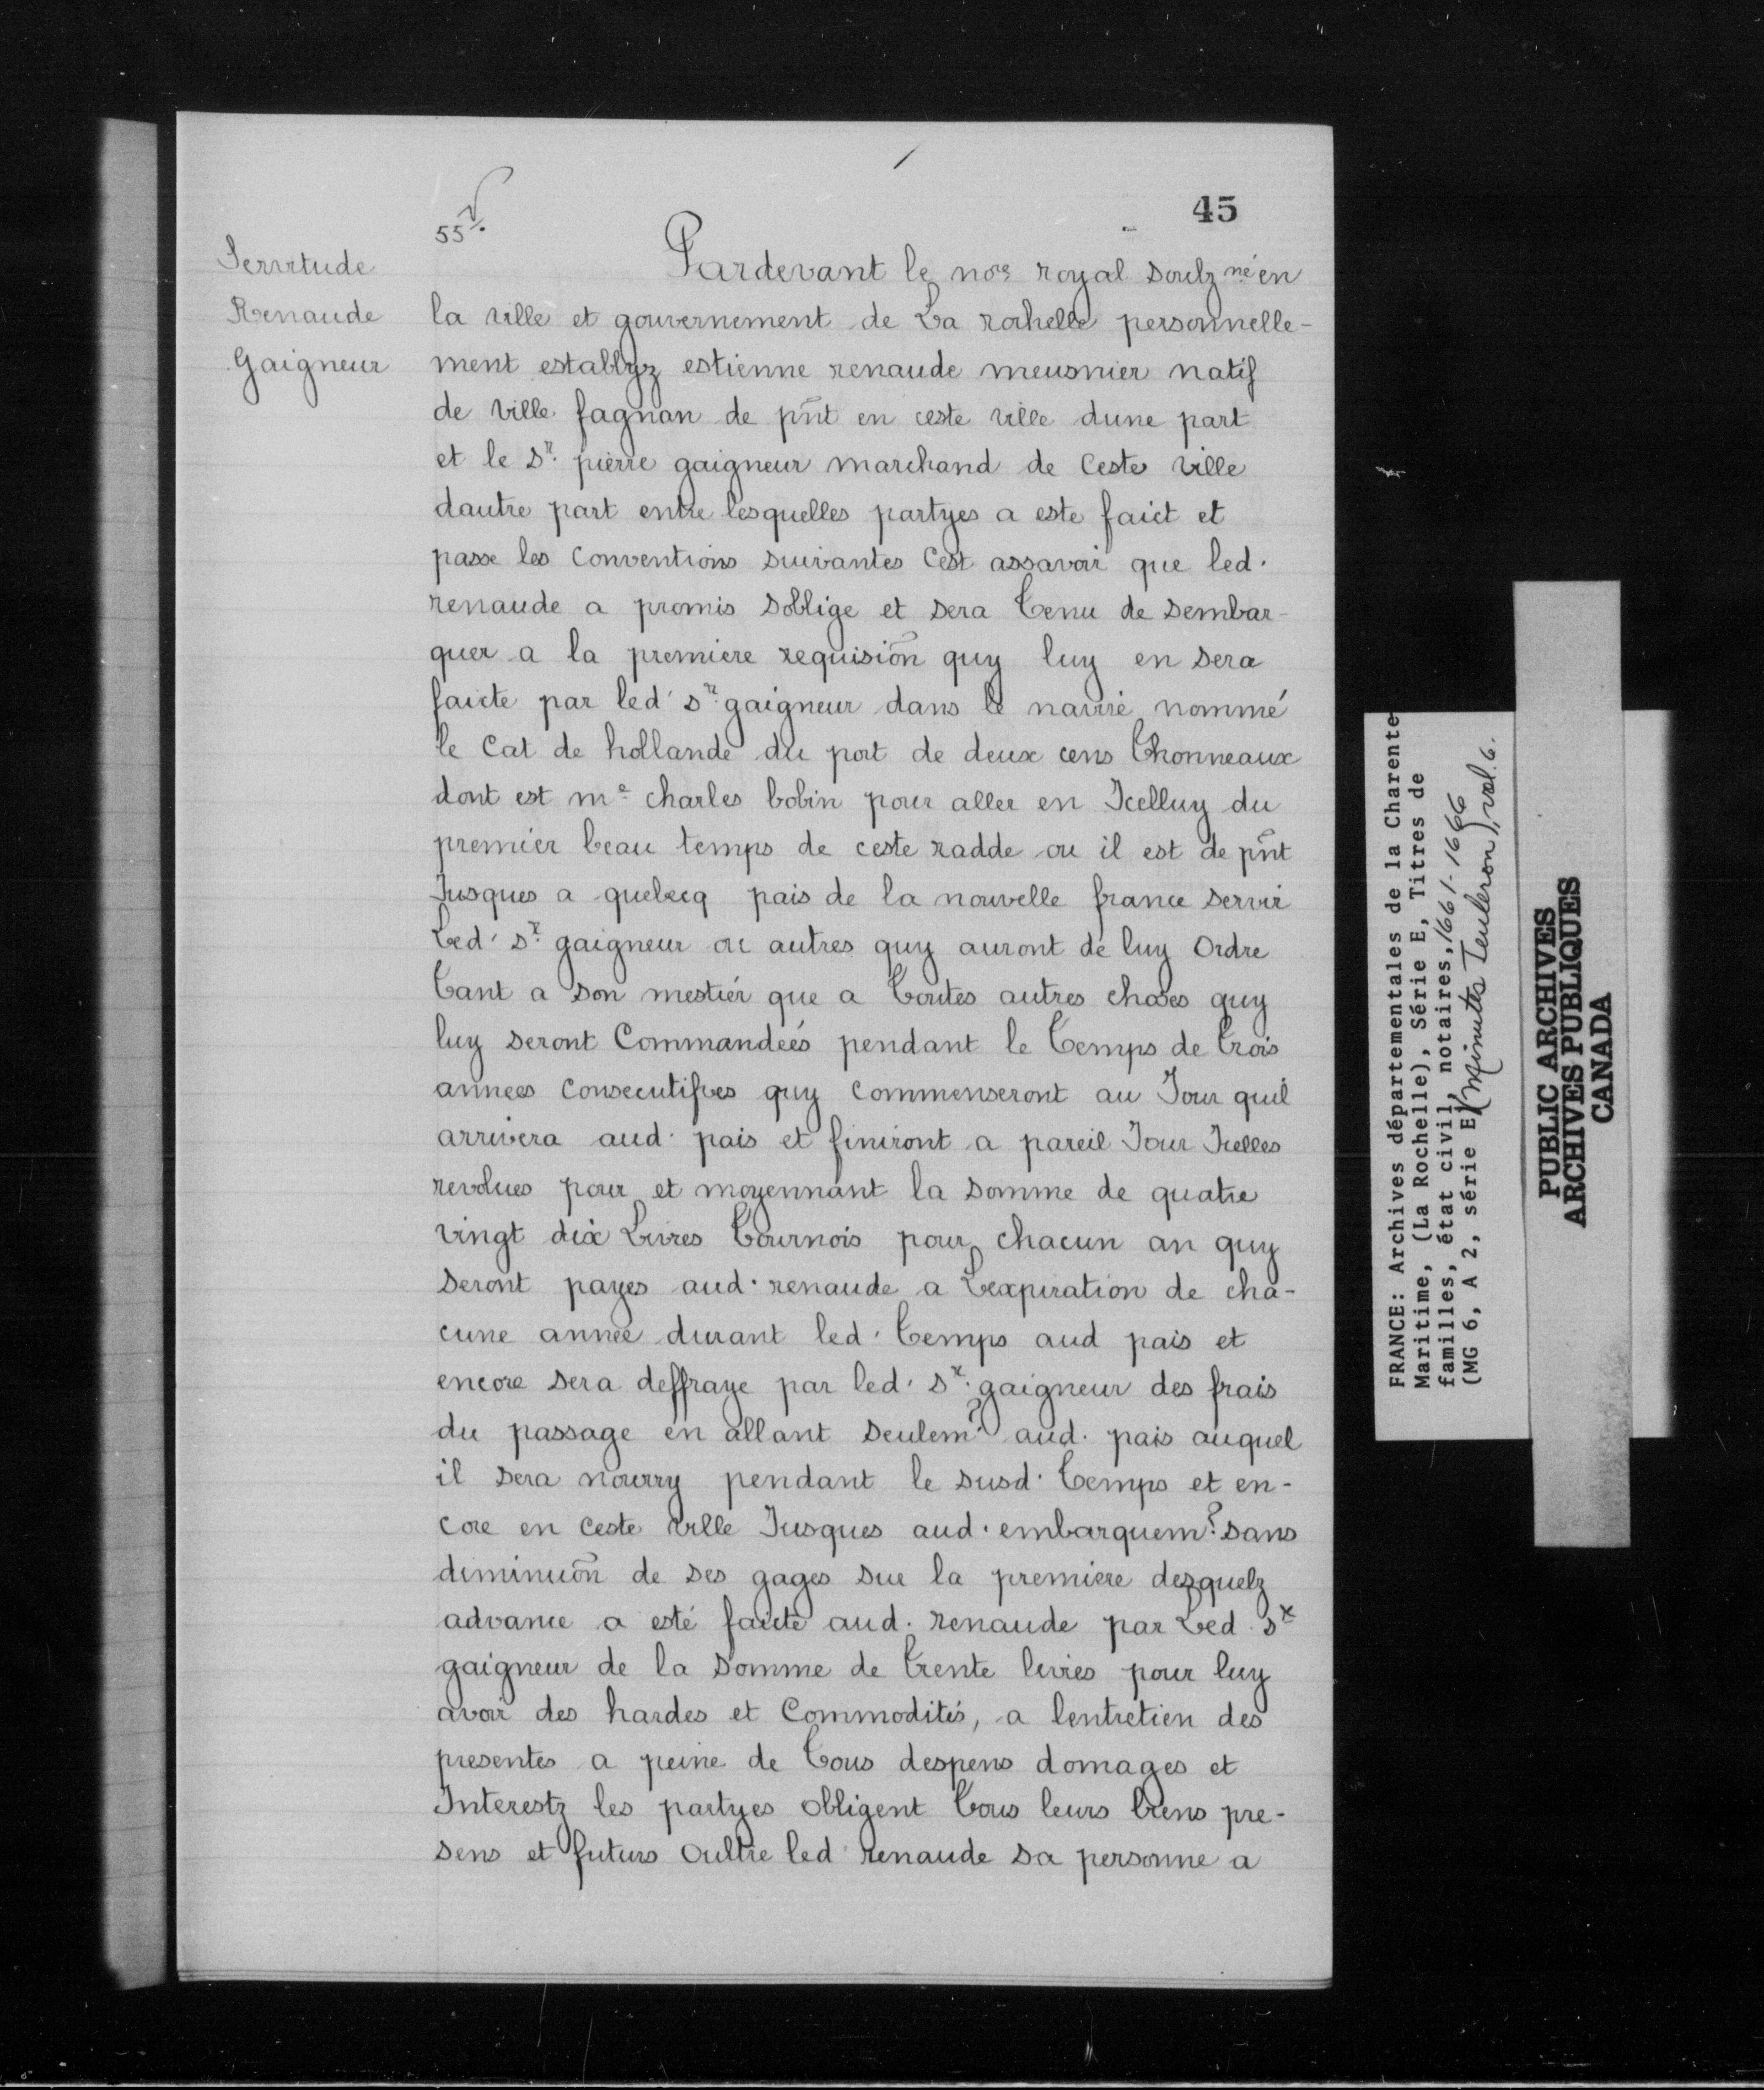 45
55
Servitude
Renaude
Gaigneur
Pardevant le nore royal soubz né en
la ville et gouvernement de La rochelle personnelle-
ment establyz estienne renaude meusnier natif
de ville fagnan de pñt en ceste ville dune part
et le Sr. pierre gaigneur marchand de Ceste ville
dautre part entre lesquelles partyes a este faict et
passe les Conventions suivantes Cest assavoir que led.
renaude a promis soblige et sera Tenu de sembar-
quer a la premiere requision quy luy en sera
faicte par led. sr. gaigneur dans le navire nommé
le Cat de hollande du port de deux cens Thonneaux
dont est me charles bobin pour aller en Icelluy du
premier beau temps de ceste radde ou il est de pñt
Jusques a quebecq pais de la nouvelle france servir
Led. sr. gaigneur ou autres quy auront de luy Ordre
Tant a son mestier que a Toutes autres choses quy
luy seront Commandeés pendant le Temps de Trois
annees Consecutifves quy Commenseront au Jour quil
arrivera aud. pais et finiront a pareil Jour Icelles
revolues pour et moyennant la somme de quatre
vingt dix Livres Tournois pour chacun an quy
seront payes aud. renaude a Lexpiration de cha-
cune année durant led. Temps aud pais et
encore sera deffraye par led. sr. gaigneur des frais
du passage en allant seulemt aud. pais auquel
il sera nourry pendant le susd. Temps et en-
core en ceste ville Jusques aud. embarquemt sans
diminuon de ses gages sur la premiere desquelz
advance a esté faicte aud. renaude par Led. sr
gaigneur de la somme de Trente livres pour luy
avoir des hardes et Commodités, a lentretien des
presentes a peine de Tous despens domages et
Interestz les partyes Obligent Tous leurs biens pre-
sens et futurs Oultre led renaude sa personne a
FRANCE: Archives départementales de la Charente-
Maritime, (La Rochelle), Série E, Titres de
familles, état civil, notaires, 1661-1666
(MG 6, A 2, série E) (Minutes Teuleron), vol. 6.
PUBLIC ARCHIVES
ARCHIVES PUBLIQUES
CANADA